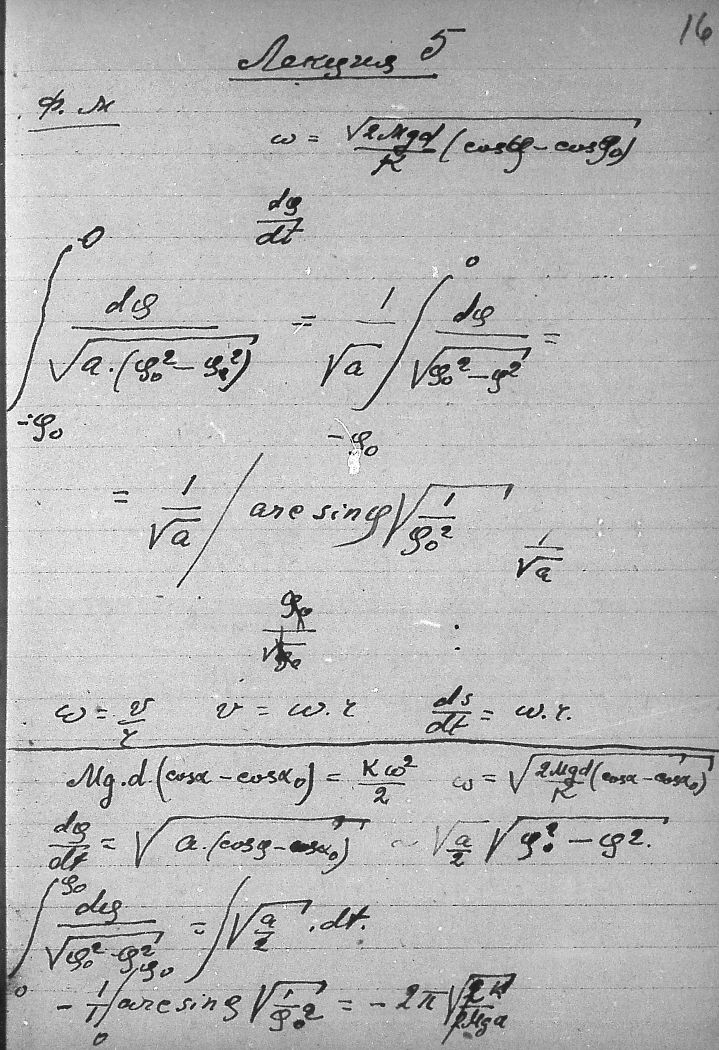 16
Лекция 5
Ф. М
ω = √(2Mgd/K (cosφ - cosφ₀))
dφ/dt
∫_{-φ₀}^{0} dφ/√(a·(φ₀² - φ²)) = 1/√a ∫_{-φ₀}^{0} dφ/√(φ₀² - φ²) =
= 1/√a / arc sin φ √(1/φ₀²) 1/√a
ω = v/r v = ω.r ds/dt = ω.r.
Mg.d.(cosα - cosα₀) = Kω²/2 ω = √(2Mgd/K (cosα - cosα₀))
dφ/dt = √(a.(cosφ - cosα₀)) ~ √(a/2) √(φ₀² - φ².)
∫_{0}^{φ₀} dφ/√(φ₀² - φ²) = ∫ √(a/2) . dt.
arc sin φ √(1/φ₀²) = - 2π